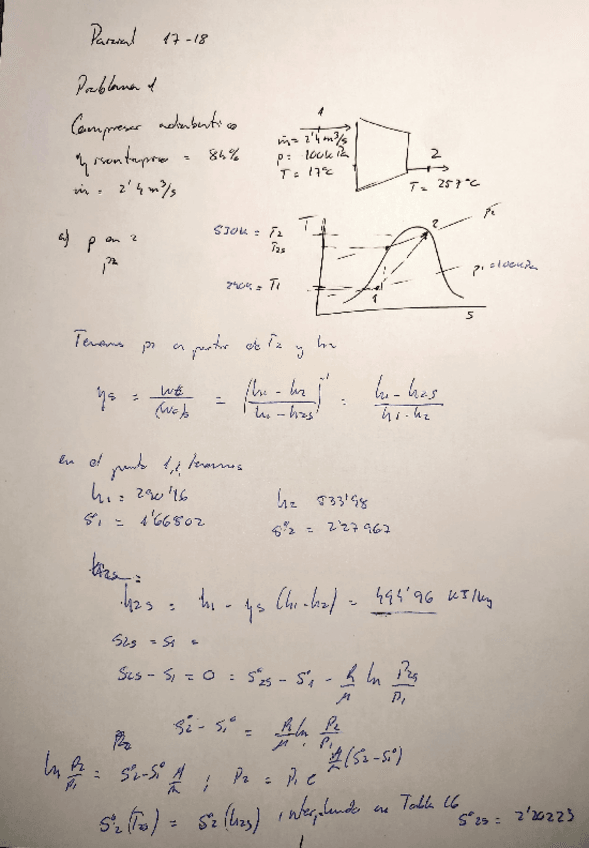 Parcial 17-18
Problema 1
Compresor adiabatico
η isentropico = 84%
ṁ = 2'4 m³/s
1
ṁ = 2'4 m³/s
p = 100 kPa
T = 17ºC
2
T = 257ºC
a) p en 2
p2
T
530K = T2
T2s
290K = T1
2
1
p2
p1 = 100kPa
S
Tenemos p2 a partir de T2 y h2
ηs = = (h1 - h2 / h1 - h2s)⁻¹ = h1 - h2s / h1 - h2
en el punto 1, 2 tenemos
h1 = 290'16 h2 = 533'98
S°1 = 1'66802 S°2 = 2'27967
h2s = h1 - ηs (h1 - h2) = 494'96 KJ/kg
S2s = S1 =
S2s - S1 = 0 = S°2s - S°1 - R/μ ln P2s/P1
S°2 - S1° = R/μ ln P2/P1
ln P2/P1 = S°2 - S1° μ/R ; P2 = P1 e^μ/R (S°2 - S°1)
S°2 (T2s) = S°2 (h2s) , interpolando en Tabla S°2s = 2'20223